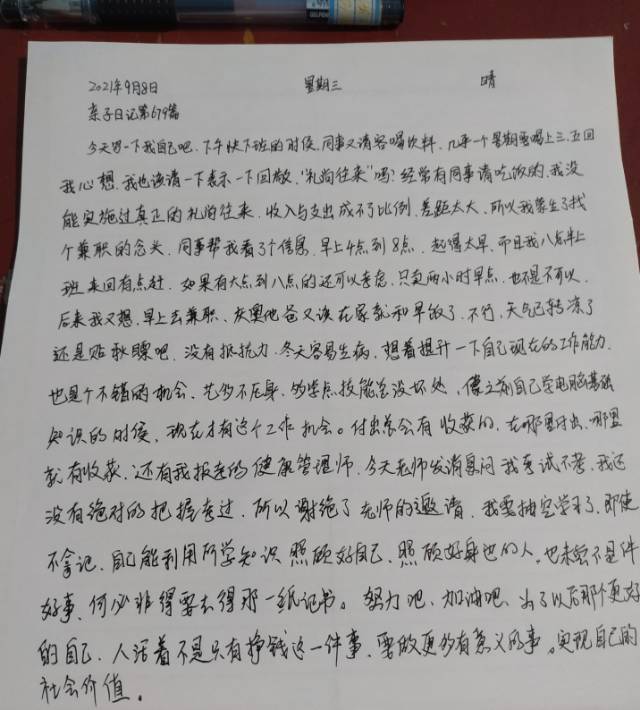 2021年9月8日 星期三 晴
亲子日记第679篇
今天写一下我自己吧.下午快下班的时候.同事又请客喝饮料.几乎一个星期要喝上三.五回
我心想.我也该请一下表示一下回敬."礼尚往来"吗!经常有同事请吃饭的.我没
能实施过真正的礼尚往来.收入与支出成不了比例.差距太大.所以我萌生了找
个兼职的念头.同事帮我看了个信息.早上4点到8点.起得太早.而且我八点半上
班来回有点赶.如果有六点到八点的还可以考虑.只卖两小时早点.也不是不可以.
后来我又想.早上去兼职.他爸又该在家就和早饭了.不行.天气已转凉了
还是贴秋膘吧.没有抵抗力.冬天容易生病.想着提升一下自己现在的工作能力.
也是个不错的机会.艺多不压身.多学点技能总没坏处.像之前自己学电脑基础
知识的时候.现在才有这个工作机会。付出总会有收获的.在哪里付出.哪里
就有收获.还有我报考的健康管理师.今天老师发消息问我考试不考.我还
没有绝对的把握考过.所以谢绝了老师的邀请.我要抽空学习了.即使
不拿证.自己能利用所学知识照顾好自己.照顾好身边的人.也未尝不是件
好事.何必非得要去得那一纸证书。努力吧.加油吧.为了以后那个更好
的自己.人活着不是只有挣钱这一件事.要做更多有意义的事。实现自己的
社会价值。